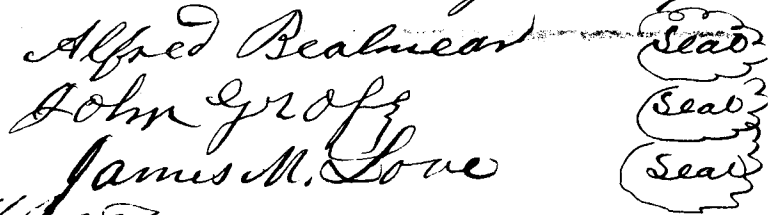 Alfred Bealmear Seal
John Groff Seal
James M. Love Seal